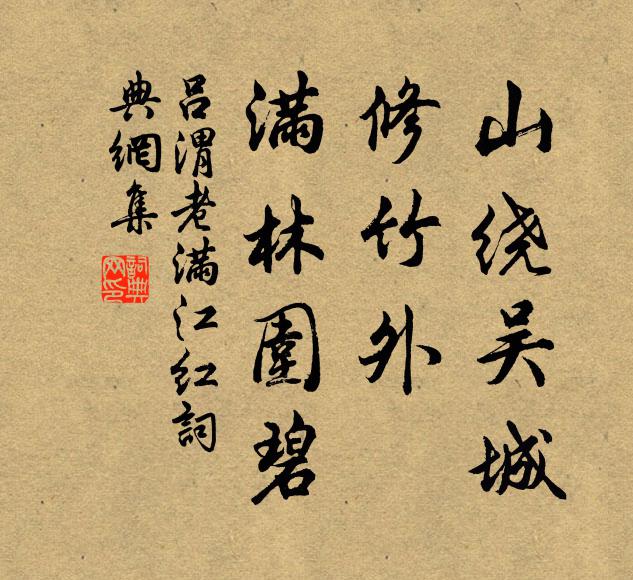 山绕吴城
修竹外
满林圍碧
吕渭老满江红詞
典網集
詞典网印